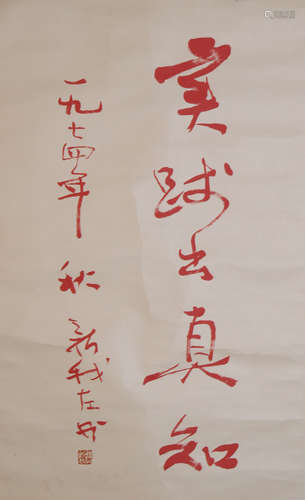 实践出真知
一九七四年 秋 新我左笔